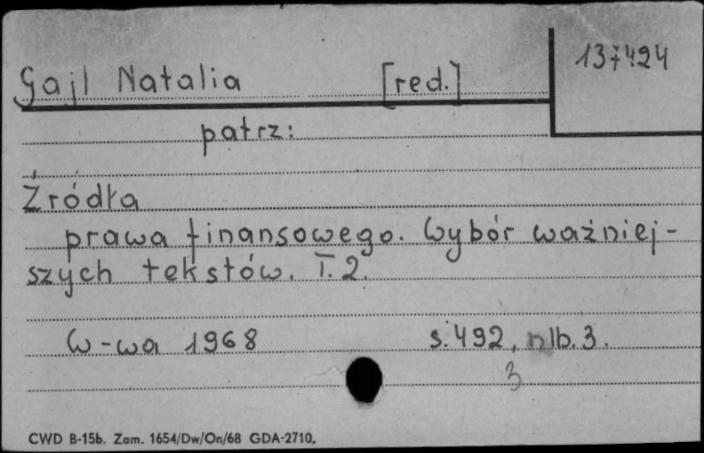 137424
Gajl Natalia [red.]
patrz:
Źródła
prawa finansowego. Wybór ważniej-
szych tekstów. T. 2.
W-wa 1968 s. 492, nlb. 3.
3
CWD B-15b. Zam. 1654/Dw/On/68 GDA-2710.